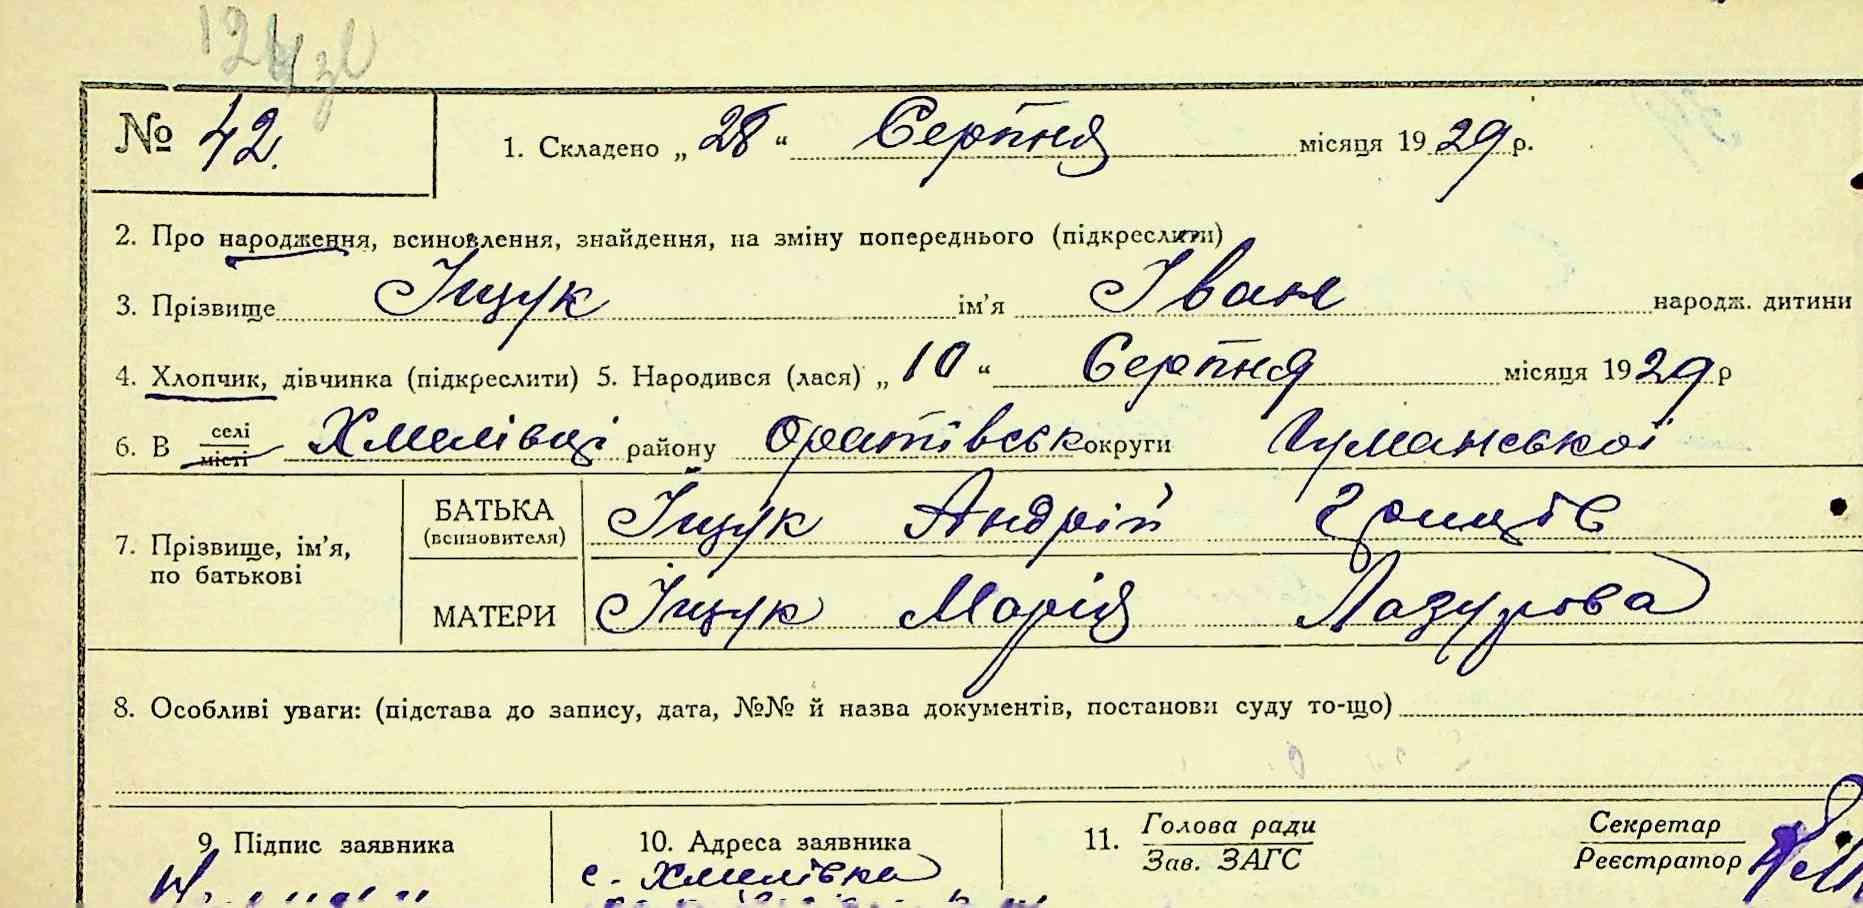 № 42.
1. Складено „ 28 “ Серпня місяця 1929 р.
2. Про народження, всиновлення, знайдення, на зміну попереднього (підкреслити)
3. Прізвище Іщук ім’я Іван народж. дитини
4. Хлопчик, дівчинка (підкреслити) 5. Народився (лася) „ 10 “ Серпня місяця 1929 р
6. В селі місті Хмелівці району Оратівськ округи Гуманської
7. Прізвище, ім’я, по батькові
БАТЬКА (всиновителя) Іщук Андрій
МАТЕРИ Іщук Марія Лазурова
8. Особливі уваги: (підстава до запису, дата, №№ й назва документів, постанови суду то-що)
9. Підпис заявника
10. Адреса заявника
с. Хмелівка
11. Голова ради
Зав. ЗАГС
Секретар
Реєстратор